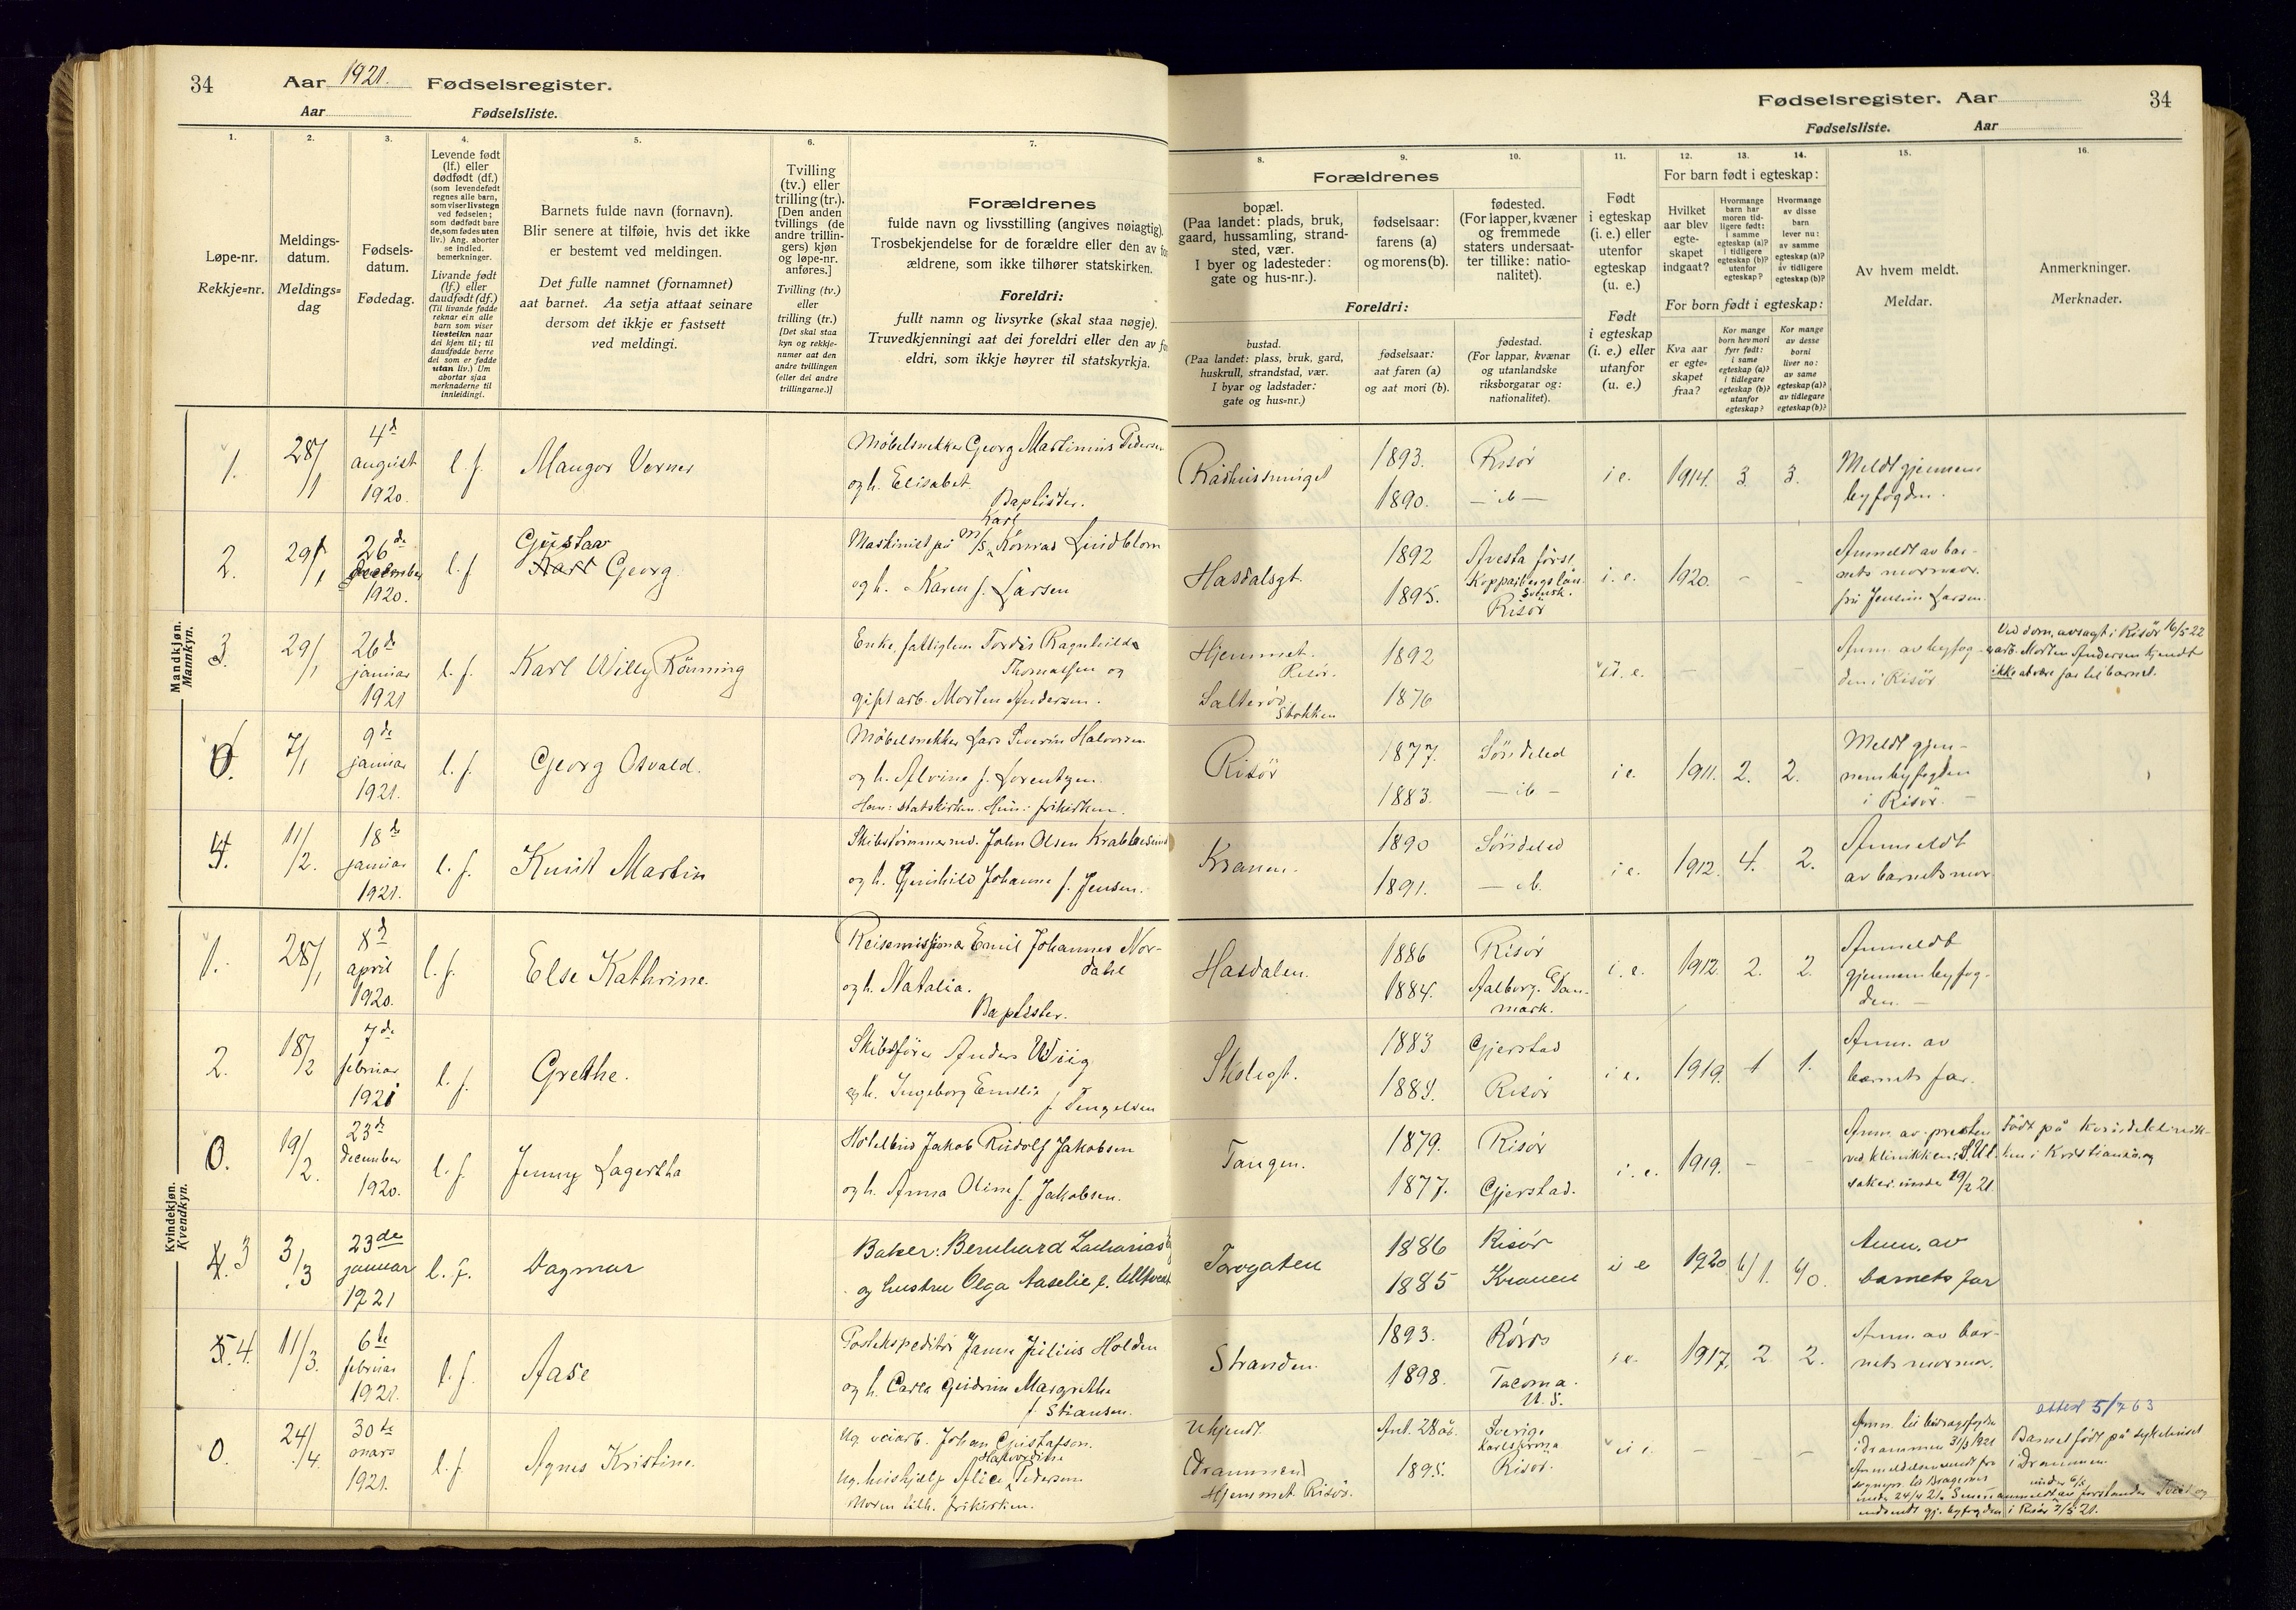 34 Aar 1921. Fødselsregister.
Aar Fødselsliste.
Fødselsregister. Aar 34
Fødselsliste. Aar
1.
Løpe-nr.
Rekkje=nr.
2.
Meldings-
datum.
Meldings=
dag
3.
Fødsels-
datum.
Fødedag.
4.
Levende født
(lf.) eller
dødfødt (df.)
(som levendefødt
regnes alle barn,
som viser livstegn
ved fødselen;
som dødfødt bare
de, som fødes uten
liv.) Ang. aborter
se indled.
bemerkninger.
Livande født
(lf.) eller
daudfødt (df.)
(Til livande fødde
reknar ein alle
barn som viser
livsteikn naar
dei kjem til; til
daudfødde berre
dei som er fødde
utan liv.) Um
abortar sjaa
merknaderne til
innleidingi.
5.
Barnets fulde navn (fornavn).
Blir senere at tilføie, hvis det ikke
er bestemt ved meldingen.
Det fulle namnet (fornamnet)
aat barnet. Aa setja attaat seinare
dersom det ikkje er fastsett
ved meldingi.
6.
Tvilling
(tv.) eller
trilling (tr.).
[Den anden
tvillings (de
andre trillin-
gers) kjøn
og løpe-nr.
anføres.]
Tvilling (tv.)
eller
trilling (tr.)
[Det skal staa
kyn og rekkje-
numer aat den
andre tvillingen
(eller dei andre
trillingarne.)]
7.
Forældrenes
fulde navn og livsstilling (angives nøiagtig).
Trosbekjendelse for de forældre eller den av for
ældrene, som ikke tilhører statskirken.
Foreldri:
fullt namn og livsyrke (skal staa nøgje).
Truvedkjenningi aat dei foreldri eller den av fo
eldri, som ikkje høyrer til statskyrkja.
8.
Forældrenes
bopæl.
(Paa landet: plads, bruk,
gaard, hussamling, strand-
sted, vær.
I byer og ladesteder:
gate og hus-nr.).
Foreldri:
bustad.
(Paa landet: plass, bruk, gard,
huskrull, strandstad, vær.
I byar og ladstader:
gate og hus=nr.)
9.
fødselsaar:
farens (a)
og morens (b).
fødselsaar:
aat faren (a)
og aat mori (b).
10.
fødested.
(For lapper, kvæner
og fremmede
staters undersaat-
ter tillike: natio-
nalitet).
fødestad.
(For lappar, kvænar
og utanlandske
riksborgarar og:
nationalitet).
11.
Født
i egteskap
(i. e.) eller
utenfor
egteskap
(u. e.)
Født
i egteskap
(i. e.) eller
utanfor
(u. e.)
12. 13. 14.
For barn født i egteskap:
Hvilket
aar blev
egte-
skapet
indgaat?
Hvormange
barn har
moren tid-
ligere født:
i samme
egteskap (a)?
i tidligere
egteskap (b)?
utenfor
egteskap?
Hvormange
av disse
barn
lever nu:
av samme
egteskap (a)?
av tidligere
egteskap (b)?
For born født i egteskap:
Kva aar
er egte-
skapet
fraa?
Kor mange
born hev mori
fyrr født:
i same
egteskap (a)?
i tidlegare
egteskap (b)?
utanfor
egteskap?
Kor mange
av desse
borni
liver no:
av same
egteskap (a)?
av tidlegare
egteskap (b)?
15.
Av hvem meldt.
Meldar.
16.
Anmerkninger.
Merknader.
Mandkjøn.
Mannkyn.
1. 28/1 4d august 1920. l. f. Mangor Verner
Møbelsnekker Georg Martinius Pedersen
og h. Elisabet.
Baptister.
1893. Risør
1890. — ib —
i e. 1914. 3 3. Meldt gjennem
byfogden.
2. 29/1 26de december 1920. l. f. Gustav
Karl Georg.
Karl
Maskinist på m/s Konrad Lindblom
og h. Karen f. Larsen
Hasdalsgt. 1892 Avesta
Kopparbergs län
Svensk.
1895. Risør
i. e. 1920. - - Anmeldt av bar-
nets mormor.
fru Jensine Larsen.
3. 29/1 26de januar 1921 l. f. Karl Willy Rönning
Enke, fattiglem Tordis Ragnhilda
Thomassen og
gift arb. Morten Andersen.
Hjemmet. Risør. 1892
Salterød Stokken 1876
u. e. — — — Anm. av byfog-
den i Risør
Ved dom, avsagt i Risør 16/5 22
arb. Morten Andersen kjendt
ikke at være far til barnet.
0. 7/1 9de januar 1921. l. f. Georg Osvald.
Møbelsnekker Lars Severin Halvorsen
og h. Alvine f. Lorentzen.
Han: statskirken. Hun: frikirken.
Risør 1877. Söndeled
1883. — ib —
i e. 1911. 2. 2. Meldt gjen-
nem byfogden
i Risør. —
4. 11/2. 18de januar 1921. l. f. Knut Martin
Skibstømmermd. John Olsen Krabbesund
og h. Gunhild Johanne f. Jensen.
Kranen. 1890 Söndeled
1891. — ib.
i e. 1912. 4. 2. Anmeldt
av barnets mor
Kvindekjøn.
Kvendkyn.
1. 28/1 8d april 1920. l. f. Else Kathrine.
Reisemissionær Emil Johannes Nor-
dahl
og h. Natalia.
Baptister.
Hasdalen. 1886 Risør
1884. Aalborg. Dan-
mark.
i. e. 1912. 2. 2. Anmeldt
gjennem byfog-
den. —
2. 18/2 7de februar 1921 l. f. Grethe.
Skibsfører Anders Wiig
og h. Ingeborg Emilie
f. Tengelsen
Skolegt. 1883 Gjerstad
1884. Risør
i e. 1919. 1 1. Anm. av
barnets far.
0. 19/2. 23de december 1920. l. f. Jenny Lagertha
Hotelbud Jakob Rudolf Jakobsen
og h. Anna Oline f. Jakobsen.
Tangen. 1879. Risør
1877. Gjerstad.
i. e. 1919. - - Anm. av presten
ved klinikken: S. Ul.
saker. under 19/2 21.
Født på kvindeklinik-
ken i Kristiania og
4. 3 3/3 23de januar 1921 l. f. Dagmar
Baker: Bernhard Zacharias
og hustru Olga Aaselie f.
Torvgaten 1886 Risør
1885 Kranen
i e 1920 b/1. b/0. Anm. av
barnets far
5. 4. 11/3. 6te februar 1921. l. f. Aase
Postekspeditør Janus Julius Holden
og h. Carla Gudrun Margrethe
f. Stiansen.
Stranden. 1893. Röros
1898. Tacoma.
U. S.
i e. 1917. 2 2. Anm. av bar-
nets mormor.
0. 24/4. 30te mars 1921. l. f. Agnes Kristine.
Ug. veiarb. Johan Gustafson.
Ug. hushjelp Alice Pedersen
Moren tilh. frikirken.
Ukjendt. Ant. 28 år. Sverige
Karlskrona
Drammen 1895. Risør.
Hjemmet Risør.
u e. — — — Anm. til bidragsfogden
i Drammen 31/3 1921
Anmeldelsen sendt fra
sognepr. til Bragernes
under 24/4 21.
indsendt gj. byfogden i Risør 7/5 21.
attest 5/7 63
Barnet født på sykehuset
i Drammen.